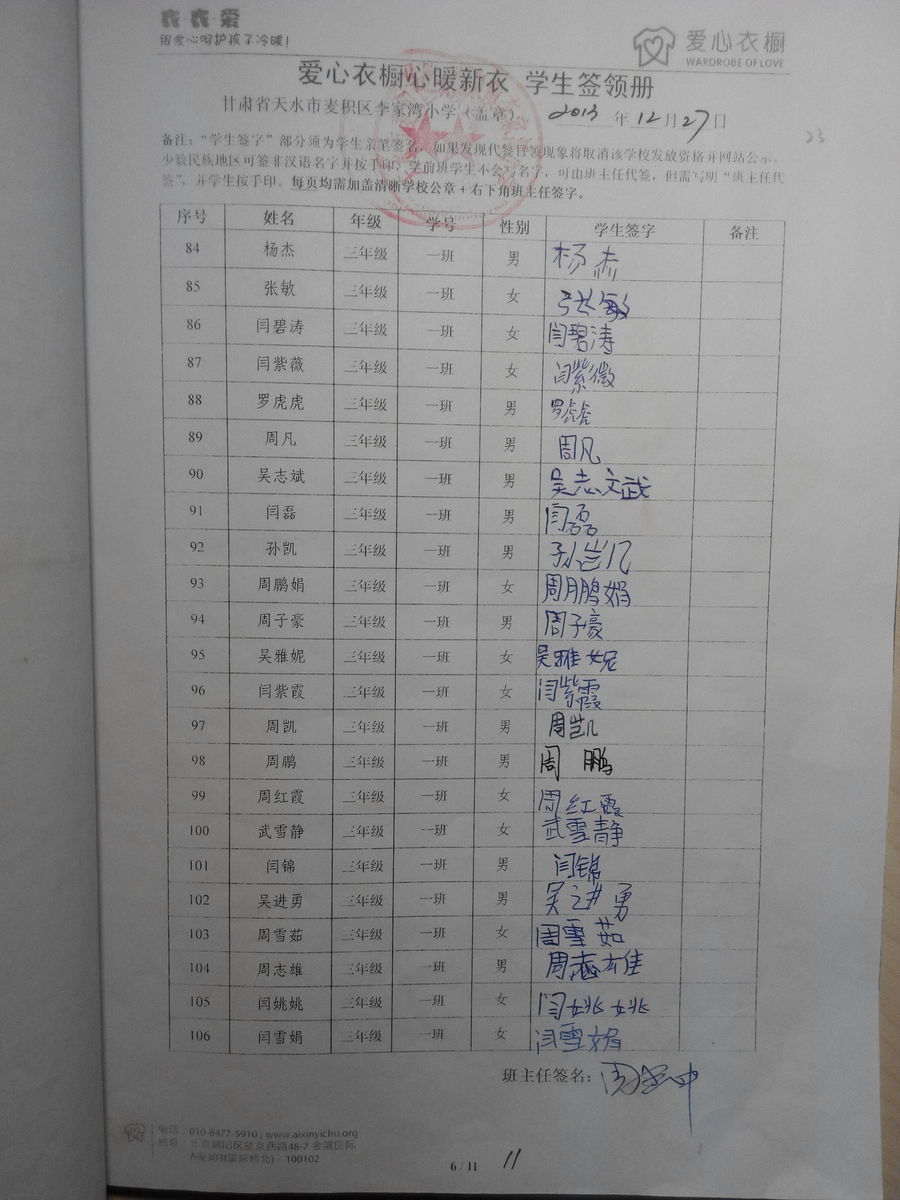 衣·衣·爱
用爱心呵护孩子冷暖!
爱心衣橱
WARDROBE OF LOVE
爱心衣橱心暖新衣 学生签领册
甘肃省天水市麦积区李家湾小学（盖章） 2013 年 12 月 27 日
23
备注：“学生签字”部分须为学生亲笔签名，如果发现代签冒领现象将取消该学校发放资格并网站公示。
少数民族地区可签非汉语名字并按手印，学前班学生不会写名字，可由班主任代签，但需写明“班主任代
签”，并学生按手印。每页均需加盖清晰学校公章＋右下角班主任签字。
序号 姓名 年级 学号 性别 学生签字 备注
84 杨杰 三年级 一班 男 杨杰
85 张敏 三年级 一班 女 张敏
86 闫碧涛 三年级 一班 女 闫碧涛
87 闫紫薇 三年级 一班 女 闫紫微
88 罗虎虎 三年级 一班 男 罗虎虎
89 周凡 三年级 一班 男 周凡
90 吴志斌 三年级 一班 男 吴志文武
91 闫磊 三年级 一班 男 闫磊
92 孙凯 三年级 一班 男 孙凯
93 周鹏娟 三年级 一班 女 周鹏娟
94 周子豪 三年级 一班 男 周子豪
95 吴雅妮 三年级 一班 女 吴雅妮
96 闫紫霞 三年级 一班 女 闫紫霞
97 周凯 三年级 一班 男 周凯
98 周鹏 三年级 一班 男 周鹏
99 周红霞 三年级 一班 女 周红霞
100 武雪静 三年级 一班 女 武雪静
101 闫锦 三年级 一班 男 闫锦
102 吴进勇 三年级 一班 男 吴进勇
103 周雪茹 三年级 一班 女 周雪茹
104 周志雄 三年级 一班 男 周志雄
105 闫姚姚 三年级 一班 女 闫姚姚
106 闫雪娟 三年级 一班 女 闫雪娟
班主任签名：
电话 010-8477-5910 | www.aixinyichu.org
地址 北京朝阳区望京西路48-7 金隅国际
A座403(望京桥北) · 100102
6 / 11
11